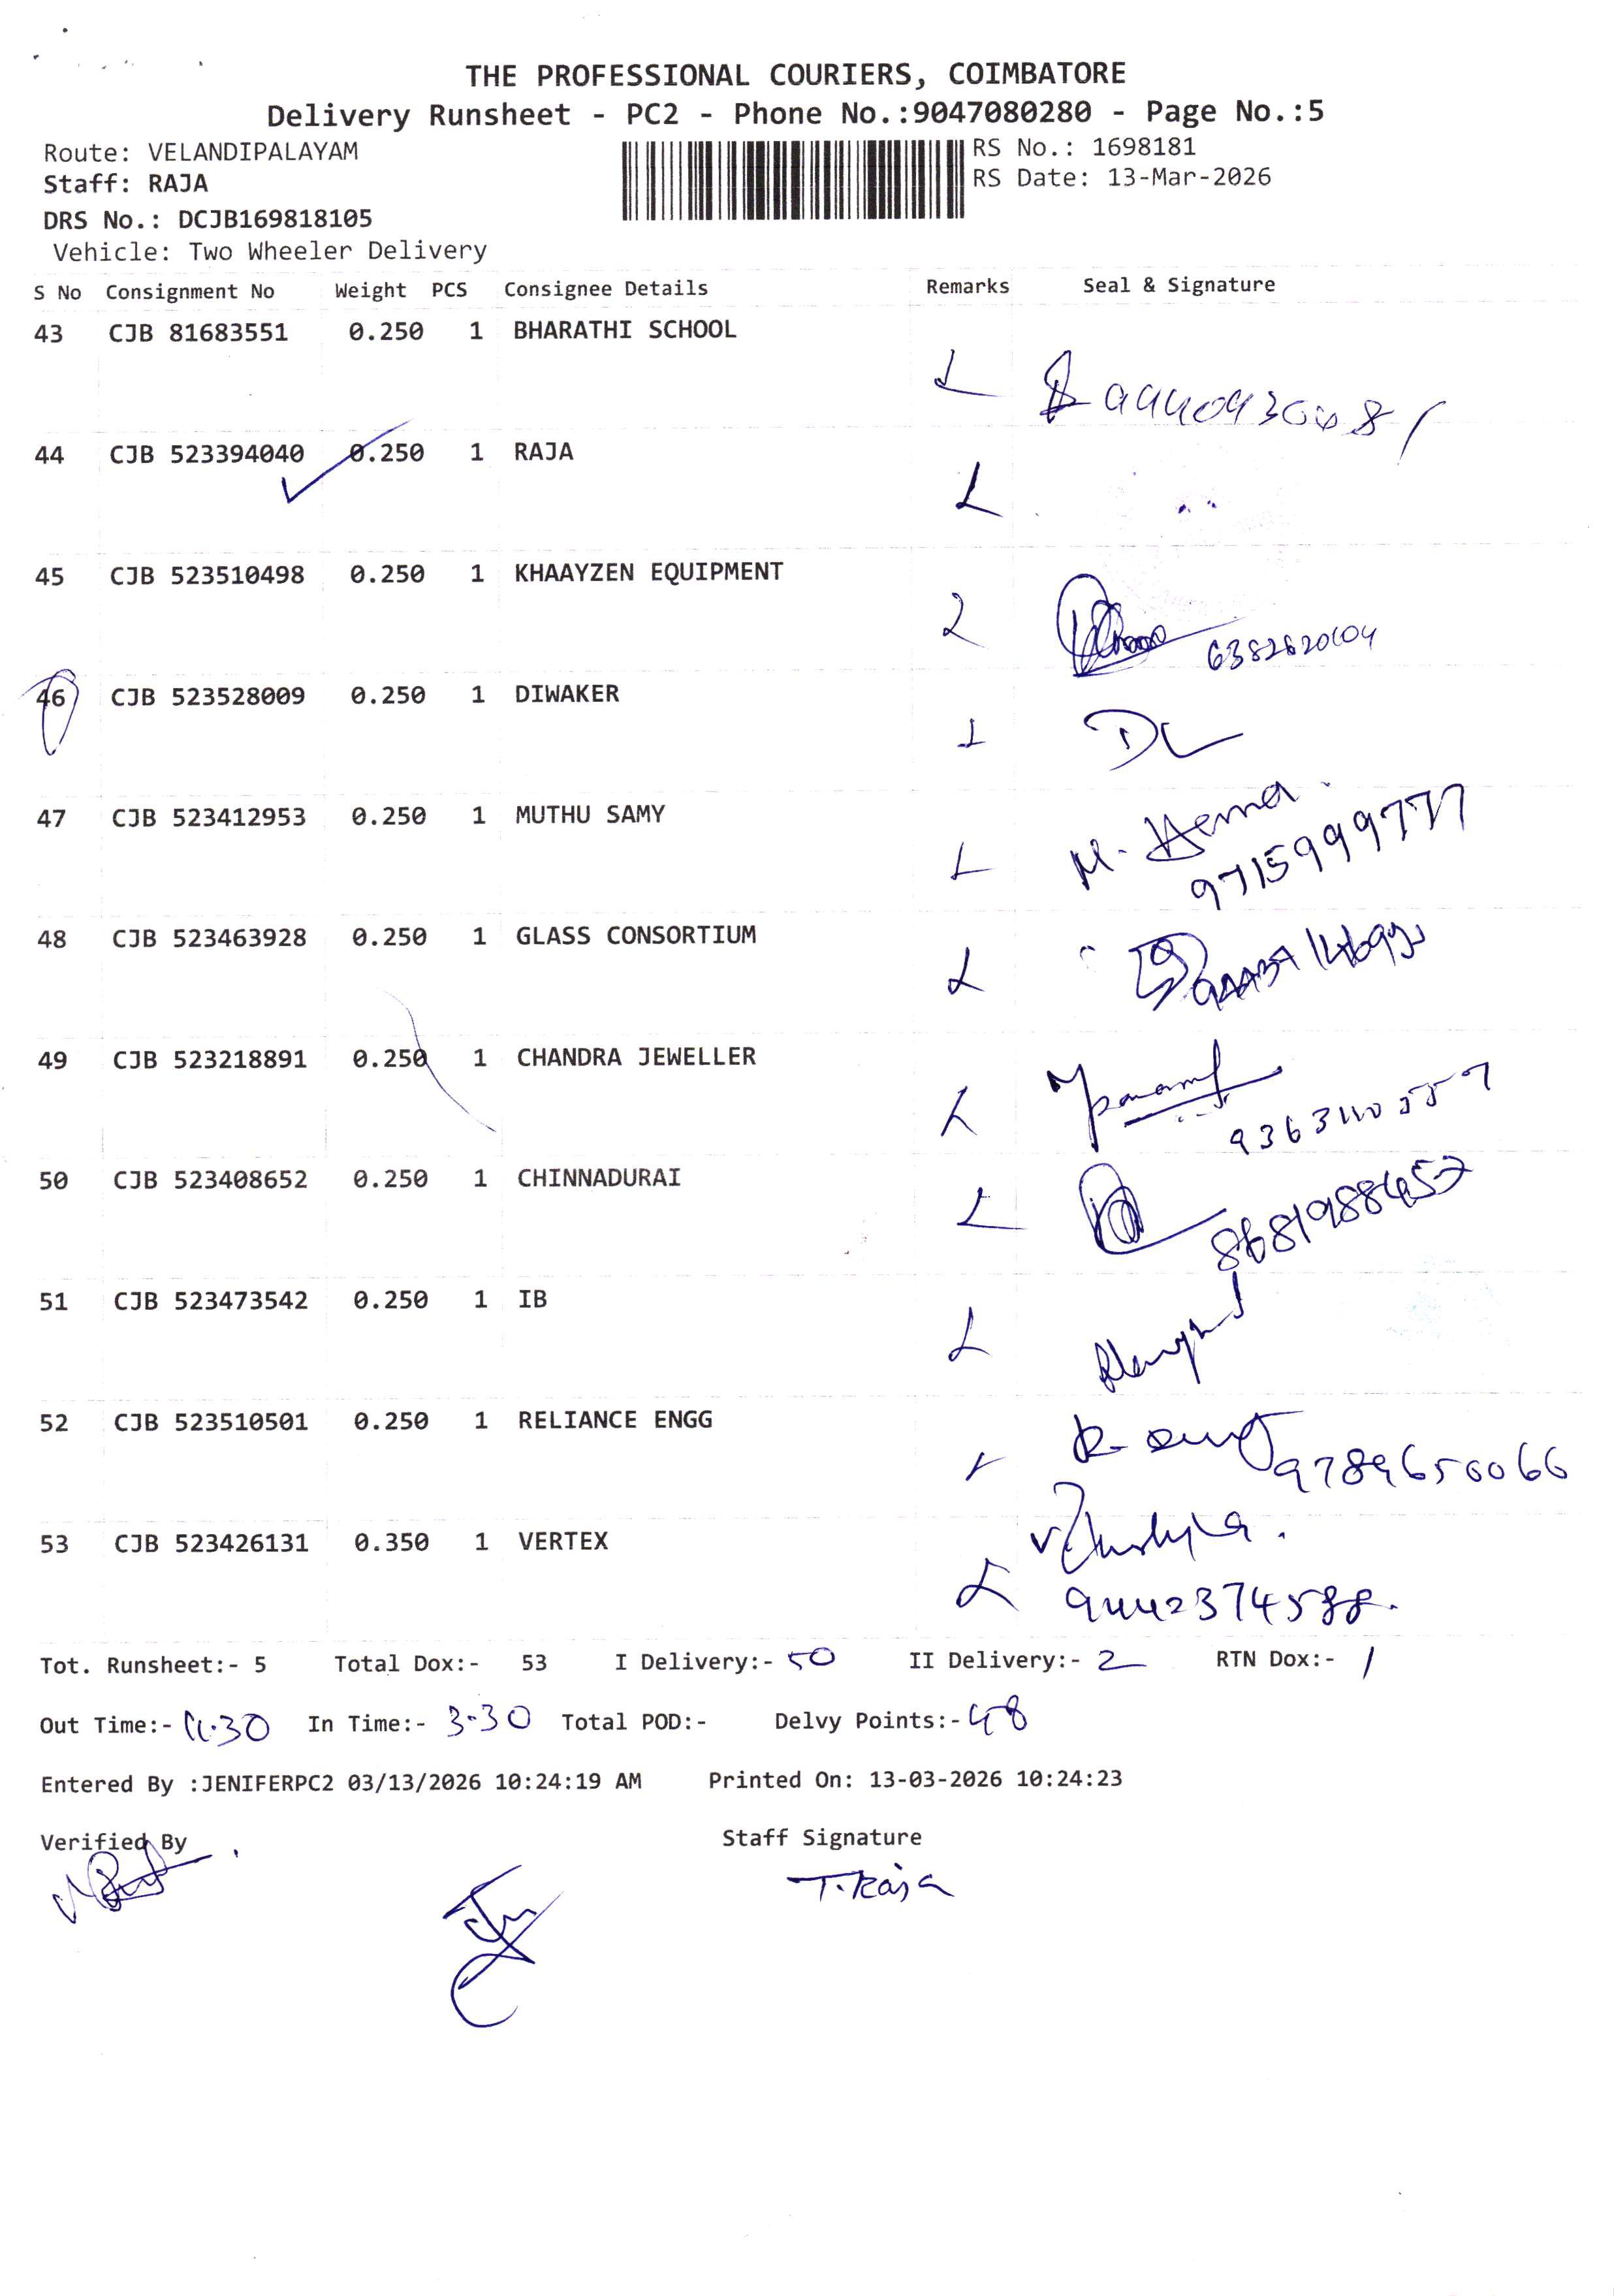 THE PROFESSIONAL COURIERS, COIMBATORE
Delivery Runsheet - PC2 - Phone No.:9047080280 - Page No.:5
Route: VELANDIPALAYAM
RS No.: 1698181
Staff: RAJA
RS Date: 13-Mar-2026
DRS No.: DCJB169818105
Vehicle: Two Wheeler Delivery
S No Consignment No Weight PCS Consignee Details Remarks Seal & Signature
43 CJB 81683551 0.250 1 BHARATHI SCHOOL
44 CJB 523394040 0.250 1 RAJA
45 CJB 523510498 0.250 1 KHAAYZEN EQUIPMENT
46 CJB 523528009 0.250 1 DIWAKER
47 CJB 523412953 0.250 1 MUTHU SAMY
M. Hema
48 CJB 523463928 0.250 1 GLASS CONSORTIUM
49 CJB 523218891 0.250 1 CHANDRA JEWELLER
50 CJB 523408652 0.250 1 CHINNADURAI
51 CJB 523473542 0.250 1 IB
52 CJB 523510501 0.250 1 RELIANCE ENGG
9789650066
53 CJB 523426131 0.350 1 VERTEX
9442374588.
Tot. Runsheet:- 5 Total Dox:- 53 I Delivery:- 50 II Delivery:- 2 RTN Dox:- 1
Out Time:- 11.30 In Time:- 3-30 Total POD:- Delvy Points:- 48
Entered By :JENIFERPC2 03/13/2026 10:24:19 AM Printed On: 13-03-2026 10:24:23
Verified By Staff Signature
T. Raja